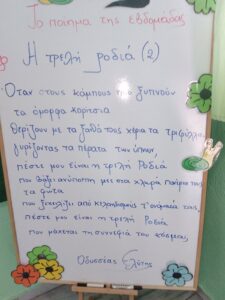 Το ποίημα της εβδομάδας
Η τρελή ροδιά (2)
Όταν στους κάμπους που ξυπνούν
τα όμορφα κορίτσια
θερίζουν με τα ξανθά τους χέρια τα τριφύλλια
γυρίζοντας τα πέρατα των ύπνων,
πέστε μου είναι η τρελή Ροδιά
που βάζει ανύποπτη μες στα χλωρά πανέρια της
τα φώτα
που ξεχειλίζει από κελαηδισμούς τ' όνομά τους,
πέστε μου είναι η τρελή Ροδιά
που μάχεται τη συννεφιά του κόσμου;
Οδυσσέας Ελύτης